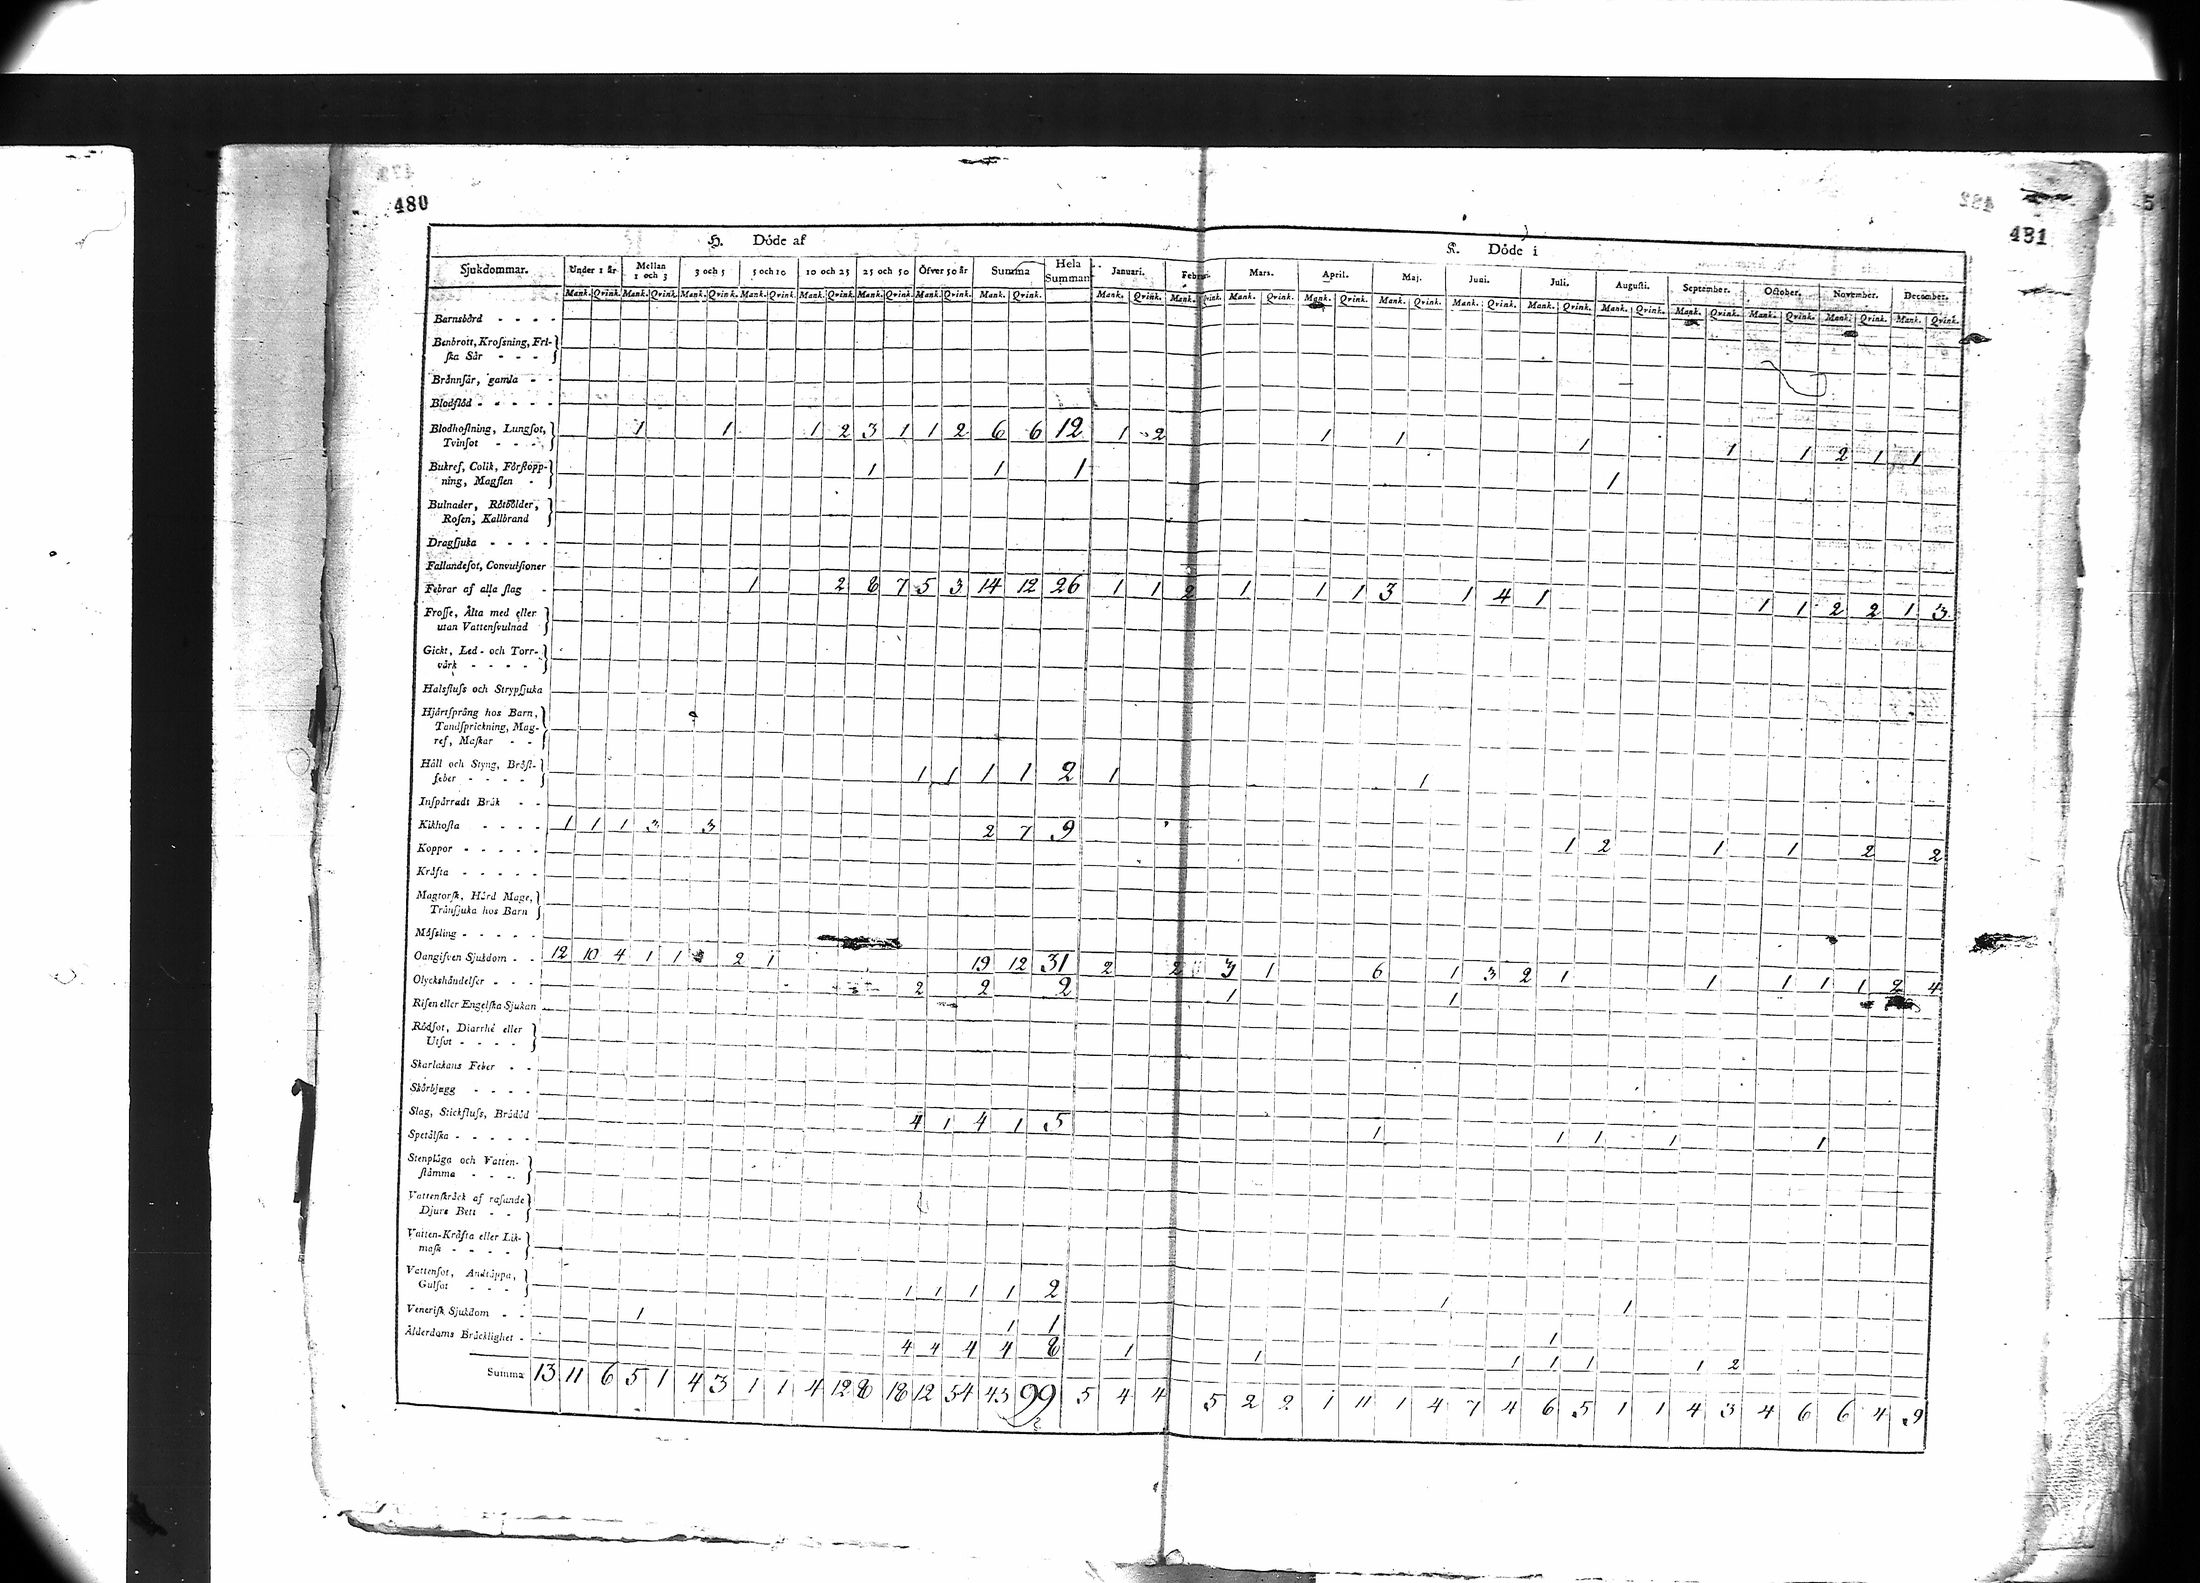 480
481
H. Döde af
K. Döde i
Sjukdommar. Under 1 år Mellan 1 och 3 3 och 5 5 och 10 10 och 25 25 och 50 Öfver 50 år Summa Hela Summan Januari. Februari. Mars. April. Maj. Juni. Juli. Augusti. September. October. November. December.
Mank. Qvink. Mank. Qvink. Mank. Qvink. Mank. Qvink. Mank. Qvink. Mank. Qvink. Mank. Qvink. Mank. Qvink. Mank. Qvink. Mank. Qvink. Mank. Qvink. Mank. Qvink. Mank. Qvink. Mank. Qvink. Mank. Qvink. Mank. Qvink. Mank. Qvink. Mank. Qvink. Mank. Qvink. Mank. Qvink.
Barnsbörd - - - -
Benbrott, Krosning, Fri-
ska Sår - - -
Brännsår, gamla - -
Blodflöd - - - - -
Blodhostning, Lungsot,
Tvinsot - - - 1 1 1 2 3 1 1 2 6 6 12 1 2 1 1 1 1 1 2 1 1
Bukref, Colik, Förstopp-
ning, Magsten - 1 1 1 1
Bulnader, Rötbölder,
Rosen, Kallbrand
Dragsjuka - - - -
Fallandesot, Convulsioner
Febrar af alla slag - 1 2 8 7 5 3 14 12 26 1 1 2 1 1 1 3 1 4 1 1 1 2 2 1 3
Frosse, Älta med eller
utan Vattensvulnad
Gickt, Led- och Torr-
värk - - - -
Halsfluss och Strypsjuka
Hjärtsprång hos Barn,
Tandsprickning, Mag-
ref, Maskar - -
Håll och Styng, Bröst-
feber - - - - 1 1 1 1 2 1 1
Inspärradt Bråk - -
Kikhosta - - - - 1 1 1 3 3 2 7 9 1 2 1 1 2 2
Koppor - - - - -
Kräfta - - - - -
Magtorsk, Hård Mage,
Tränsjuka hos Barn
Mässling - - - - -
Oangifven Sjukdom - - 12 10 4 1 1 2 1 19 12 31 2 2 3 1 6 1 3 2 1 1 1 1 1 2 4
Olyckshändelser - - - 2 2 2 1 1
Risen eller Engelska Sjukan
Rödsot, Diarrhé eller
Utsot - - - -
Skarlakans Feber - -
Skörbjugg - - - -
Slag, Stickfluss, Brådöd 4 1 4 1 5 1 1 1 1 1
Spetälska - - - - -
Stenplåga och Vatten-
stämma - - - -
Vattenskräck af rasande
Djurs Bett - -
Vatten-Kräfta eller Lik-
mask - - - -
Vattensot, Andtäppa,
Gulsot - - - 1 1 1 1 2 1 1
Venerisk Sjukdom - - 1 1 1 1
Ålderdoms Bräcklighet - 4 4 4 4 8 1 1 1 1 1 1 2
Summa 13 11 6 5 1 4 3 1 1 4 12 8 18 12 54 45 99 5 4 4 5 2 2 1 11 1 4 7 4 6 5 1 1 4 3 4 6 6 4 9